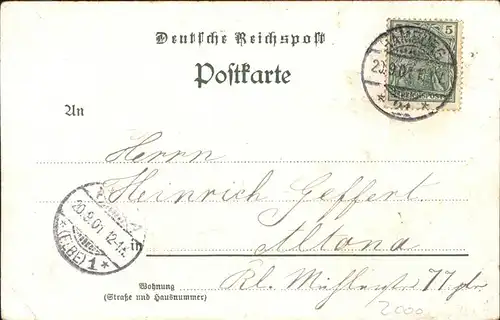 Deutsche Reichspost
Postkarte
5
HAMBURG
20.9.01
An
Herrn
Heinrich Geffert
20.9.01 12-1N.
(ELBE) 1
in
Altona
Wohnung
(Straße und Hausnummer)
Kl. Mühlenstr 77 ptr
2000